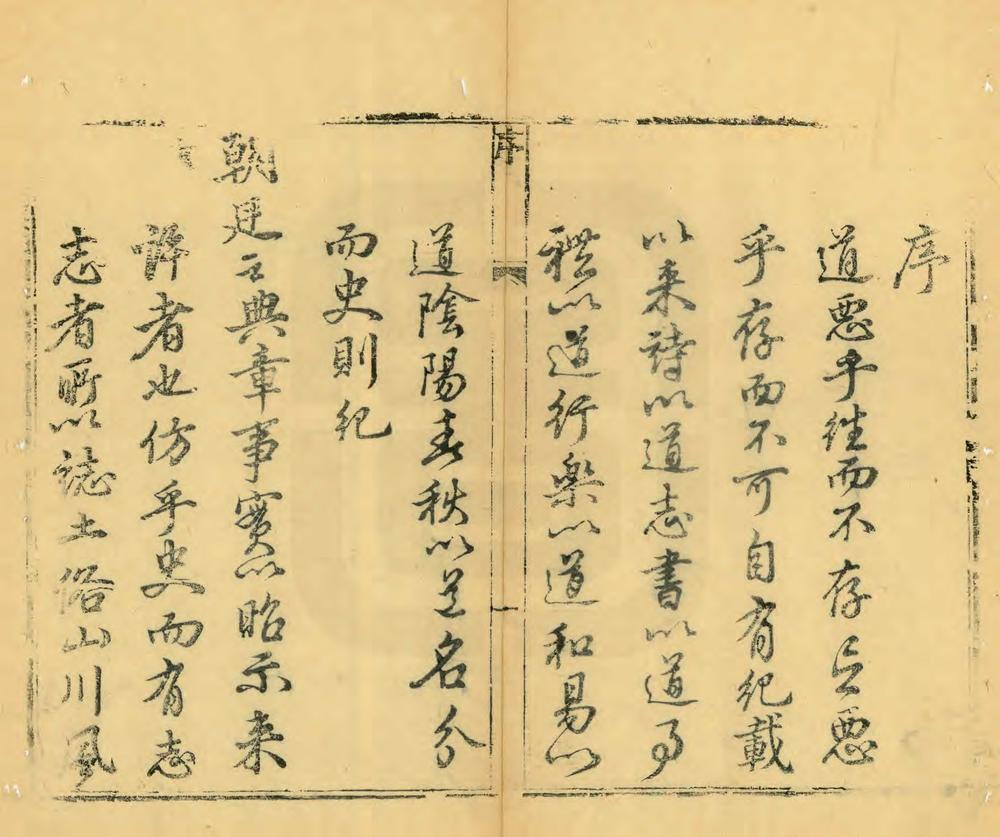 序
道惡乎往而不存言惡
乎存而不可自有紀載
以来詩以道志書以道事
禮以道行樂以道和易以
序
道陰陽春秋以道名分
而史則紀
朝廷之典章事實以昭示来
許者也仿乎史而有志
志者所以誌土俗山川風